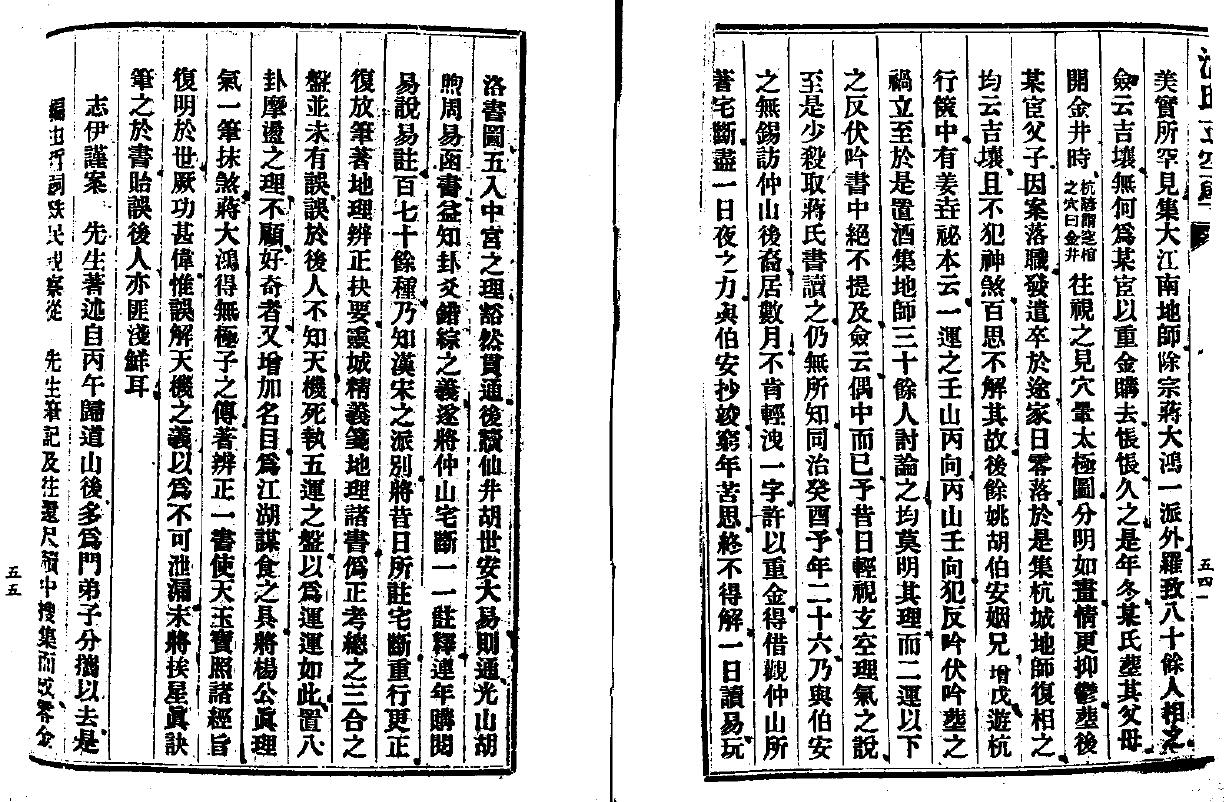 沈氏玄空學
美實所罕見集大江南地師除宗蔣大鴻一派外羅致八十餘人相之
僉云吉壤無何爲某宦以重金購去悵悵久之是年冬某氏塟其父母
開金井時杭諺謂之穴曰金井往視之見穴暈太極圖分明如畫情更抑鬱塟後
某宦父子因案落職發遣卒於途家日零落於是集杭城地師復相之
均云吉壤且不犯神煞百思不解其故後餘姚胡伯安姻兄增戊遊杭
行篋中有姜垚祕本云一運之壬山丙向丙山壬向犯反吟伏吟塟之
禍立至於是置酒集地師三十餘人討論之均莫明其理而二運以下
之反伏吟書中絕不提及僉云偶中而已予昔日輕視玄空理氣之說
至是少殺取蔣氏書讀之仍無所知同治癸酉予年二十六乃與伯安
之無錫訪仲山後裔居數月不肯輕洩一字許以重金得借觀仲山所
著宅斷盡一日夜之力與伯安抄竣窮年苦思終不得解一日讀易玩
五四
洛書圖五入中宮之理豁然貫通後讀仙井胡世安大易則通光山胡
煦周易函書益知卦爻錯綜之義遂將仲山宅斷一一註釋連年購閱
易說易註百七十餘種乃知漢宋之派別將昔日所註宅斷重行更正
復放筆著地理辨正抉要靈城精義箋地理諸書僞正考總之三合之
盤並未有誤誤於後人不知天機死執五運之盤以爲運運如此置八
卦摩盪之理不顧好奇者又增加名目爲江湖謀食之具將楊公眞理
氣一筆抹煞蔣大鴻得無極子之傳著辨正一書使天玉寶照諸經旨
復明於世厥功甚偉惟誤解天機之義以爲不可泄漏未將挨星眞訣
筆之於書貽誤後人亦匪淺鮮耳
志伊謹案　先生著述自丙午歸道山後多爲門弟子分攜以去是
編也　民　察從　先生筆記及往還尺牘中搜集而成零金
五五